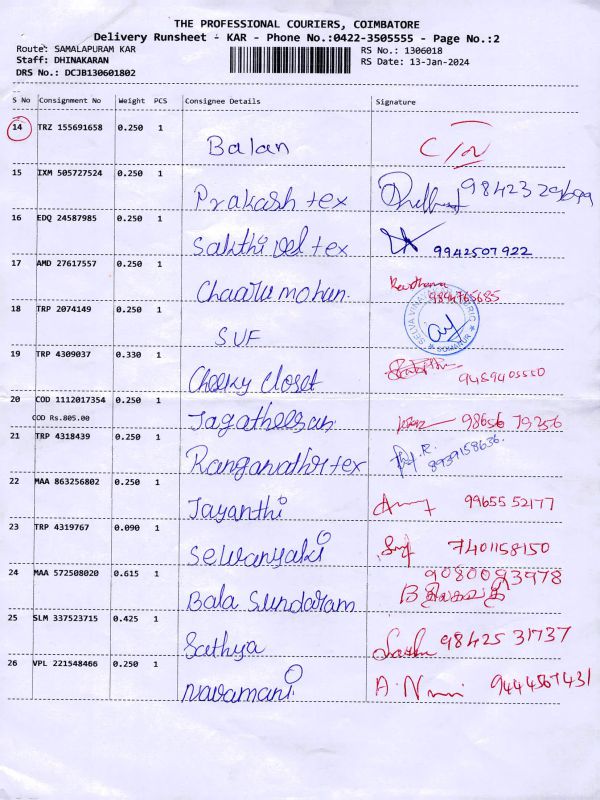 THE PROFESSIONAL COURIERS, COIMBATORE
Delivery Runsheet - KAR - Phone No.:0422-3505555 - Page No.:2
Route: SAMALAPURAM KAR
RS No.: 1306018
Staff: DHINAKARAN
RS Date: 13-Jan-2024
DRS No.: DCJB130601802
S No Consignment No Weight PCS Consignee Details Signature
14 TRZ 155691658 0.250 1 Balan
15 IXM 505727524 0.250 1 Prakash tex
16 EDQ 24587985 0.250 1 Sakthi vel tex 9942507922
17 AMD 27617557 0.250 1 Chaaru mohan 9894765685
18 TRP 2074149 0.250 1 SUF
19 TRP 4309037 0.330 1 Cheeky Closet
20 COD 1112017354 0.250 1 Jagatheesan 98656 79256
COD Rs.805.00
21 TRP 4318439 0.250 1 Ranganatha tex 8939158636
22 MAA 863256802 0.250 1 Jayanthi 99655 52177
23 TRP 4319767 0.090 1 Selvanyaki 7401158150
24 MAA 572508020 0.615 1 Bala Sundaram 9080093978
25 SLM 337523715 0.425 1 Sathya 98425 31737
26 VPL 221548466 0.250 1 Navamani 9444567431